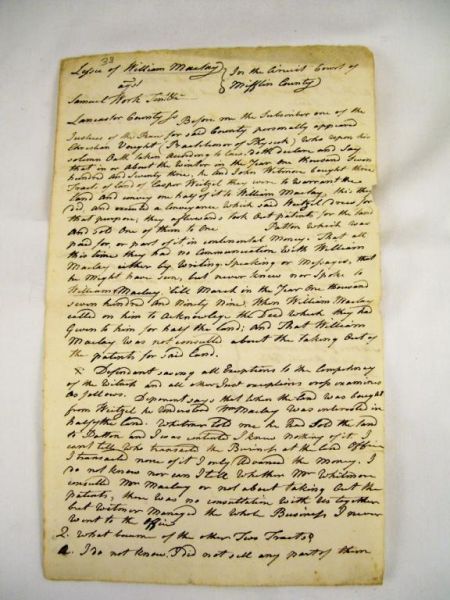 33
Lessee of William Maclay } In the Circuit Court of
agst } Mifflin County
Samuel Work
Lancaster County Ss Before me the Subscriber one of the
Justices of the Peace for said County personally appeared
Christian Vought (Practitioner of Physick) who upon his
solemn Oath taken according to Law doth declare and Say
that in or about the winter in the Year one thousand Seven
hundred and Seventy three, he and John Witmore bought three
Tract of Land of Casper Weitzel they were to warrant the
Land and convey one half of it to William Maclay. this they
did and executed a conveyance which said Weitzel drew for
that purpose; they afterwards took out patents for the land
and Sold One of them to one Patton which was
paid for, or part of it in continental Money. That all
this time they had no Communication with William
Maclay either by Writing Speaking or Messages, that
he might have seen, but never knew nor spoke to
William Maclay till March in the Year One thousand
seven hundred and Ninety Nine. When William Maclay
called on him to Acknowledge the Deed which they had
Given to him for half the land; and That William
Maclay was not consulted about the taking Out of
the patents for Said Land.
X Defendant saving all Exceptions to the Competency
of the Witness and all other Just exceptions cross examines
as follows. Deponent says that when the land was bought
from Weitzel he understood Wm Maclay was interested in
half the land. Whitmer told me he had Sold the land
to Patton and I was I knew nothing of it
cant tell who transacted the Business at the Land Office
I transacted none of it I only advanced the Money. I
do not know nor can I tell whether Mr Whitmore
consulted Mr Maclay or not about taking out the
patents, there was no consultation with us together
but Witmor Managed the whole Business I never
went to the Office
Q. What became of the other Two Tracts?
A. I do not know. I did not sell any part of them